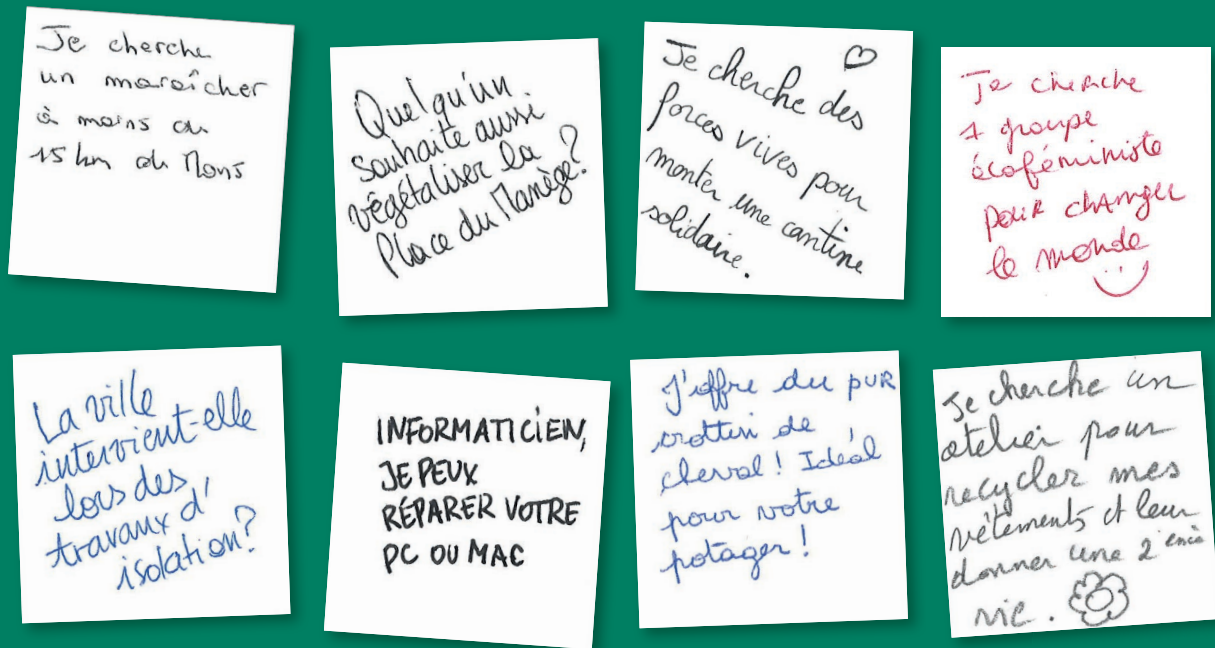 Je cherche
un maraîcher
à moins de
15 km de Mons
Quelqu'un
souhaite aussi
végétaliser la
Place du Manège?
Je cherche des
forces vives pour
monter une cantine
solidaire.
Je cherche
1 groupe
écoféministe
pour changer
le monde
La ville
intervient-elle
lors des
travaux d'
isolation?
INFORMATICIEN,
JE PEUX
RÉPARER VOTRE
PC OU MAC
J'offre du pur
crottin de
cheval! Idéal
pour votre
potager!
Je cherche un
atelier pour
recycler mes
vêtements et leur
donner une 2ième
vie.